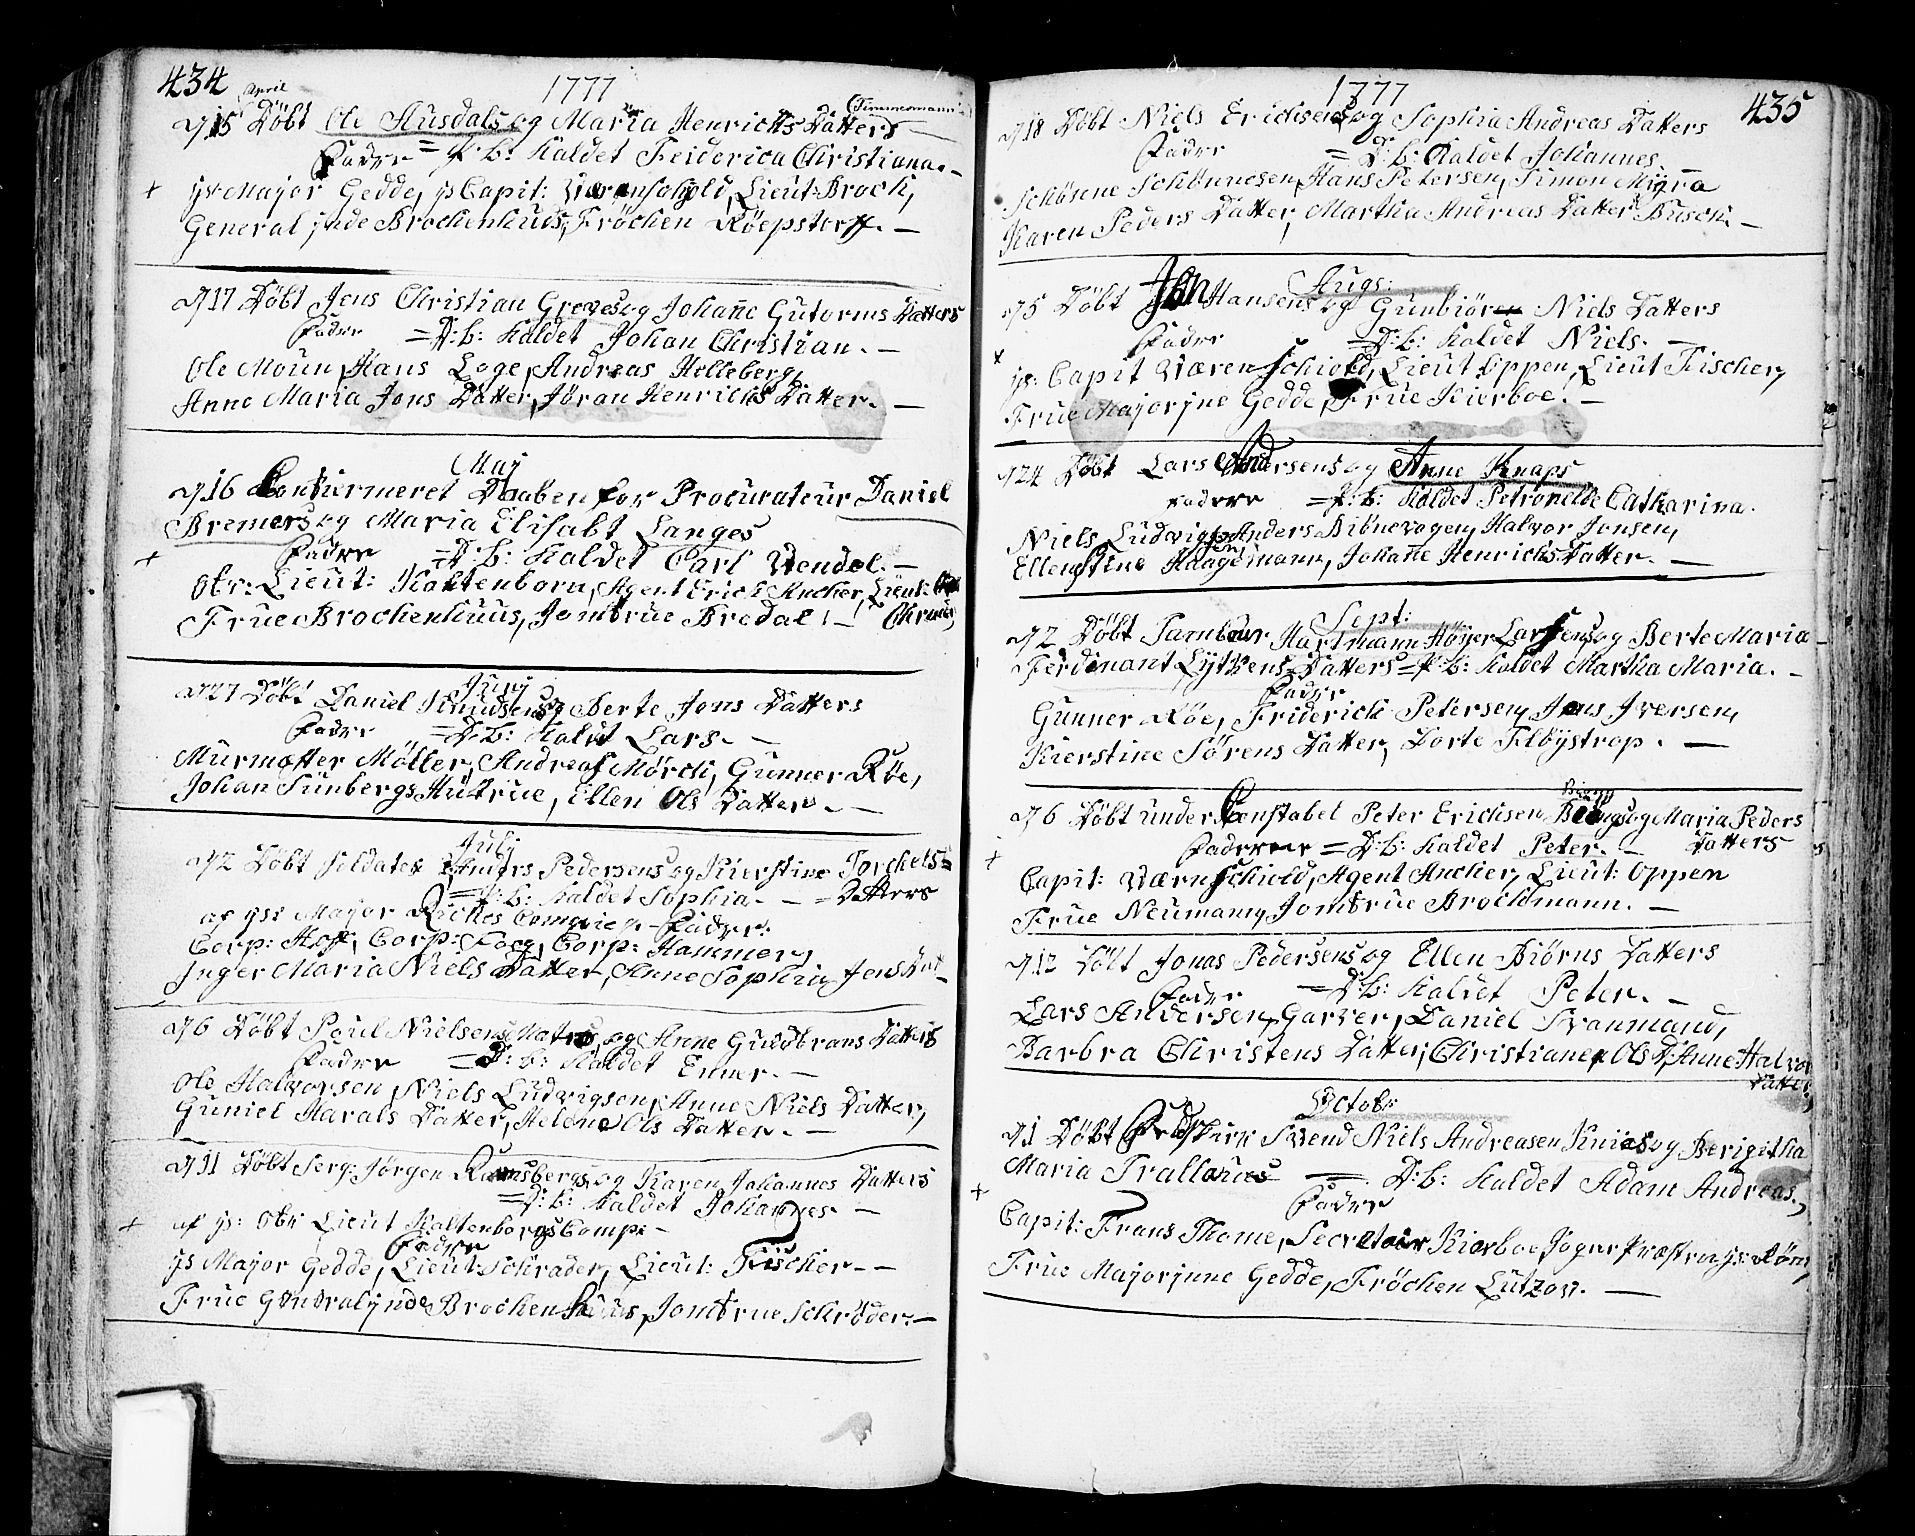 434
1777
April
d 15 Döbt Ole Husdals og Maria Henrichs Datters
Fadre = P:b: Kaldet Friderica Christiana. —
+ Major Gedde, Capit: Lieut: Broch,
General inde Brochenhuus, Fröchen Röepstorff. —
d 17 Döbt Jens Christian Greves og Johañe Gutorms Datters
Fadre = D:b: Kaldet Johan Christian. —
Ole Moun, Hans Loge, Andreas Helleberg,
Anne Maria Jens Datter, Jöran Henrichs Datter. —
Maj
d 16 Confirmeret Daaben for Procurateur Daniel
Bremers og Maria Elisabt Langes
Fadre = D:b: Kaldet Carl Wendel. —
+ Obr: Lieut: Kaltenborn, Agent Erich Ancher, Lieut:
Frue Brochenhuus, Jomfrue Bredal. —
Junj
d 27 Döbt Daniel Knudsens og Berte Jens Datters
Fadre = D:b: Kaldt Lars. —
Murmester Möller, Andreas Mörch, Gunner Röe,
Johan Sünbergs Hustrue, Ellen Ols Datter. —
Julj
d 2 Döbt Soldaten Anders Pedersens og Kierstine Torchels=
= P:b: Kaldet Sophia. — = Datters
af Major Compagie — Fadre:
Corp: Hoff, Corp: Foeg, Corp: Hammer,
Inger Maria Niels Datter, Anne Sophia Jens Dat —
d 6 Döbt Poul Nielsens Matros og Anne Guudbrans Datters
Fadre = D:b: Kaldet Enner. —
Ole Halvorsen, Niels Ludvigsen, Anne Niels Datter,
Guniel Harals Datter, Helene Ols Datter. —
d 11 Döbt Serg: Jörgen Ramsbergs og Karen Johannes Datters
= D:b: Kaldet Johannes —
+ af Obr Lieut Kaltenborns Comp: —
Fadre
Major Gedde, Lieut: Schrader, Lieut: Fischer — —
Frue Generalinde Brochenhuus, Jomfrue Schröder. —
1777
435
d 18 Döbt Niels Erichsens og Sophia Andreas Datters
Fadre = D:b: Kaldet Johannes.
Schönne Schönnesen, Hans Petersen, Simon
Karen Peders Datter, Martha Andreas Datter Busch. —
Augs:
d 5 Döbt Jon Hansens og Gunbiören Niels Datters
Fadre = D:b: Kaldet Niels. —
+ Capit Wærenschiold, Lieut Oppen, Lieut Fischer,
Frue Majorjne Gedde, Frue Kierboe. —
d 24 Döbt Lars Andersens og Anne Knaps
Fadre = P:b: Kaldet Petronelle Catharina.
Niels Ludvigsen, Anders Halvor Jonsen,
Ellen Stine Haagensmann, Johañe Henrichs Datter. —
Sept:
d 2 Döbt Tambour Hartmann Höyer Larsens og Berte Maria
Ferdinant Lythens Datters = P:b: Kaldet Martha Maria. —
Fadre
Gunner Röe, Friderich Petersen, Jens Iversen,
Kierstine Sörens Datter, Dorte Flöystrop. —
d 6 Döbt under Constabel Peter Erichsen og Maria Peders
Fadrene = D:b: Kaldet Peter. — Datters
+ Capit: Wærnschiold, Agent Ancher, Lieut: Oppen
Frue Neumann, Jomfrue Brochmann. —
d 12 Döbt Jonas Pedersens og Ellen Biörns Datters
Fadre = D:b: Kaldet Peter. —
Lars Andersen, Garver, Daniel Svanmand,
Barbra Christens Datter, Christiane Ols D, Anne Halvor
Datter,
Octobr
d 1 Döbt Svend Niels Andreasen og Berigitha
Maria = D:b: Kaldet Adam Andreas.
+ Fadre
Capit: Frans Thome, Secretair Kierboe,
Frue Majorjnne Gedde, Fröchen Lützow. —